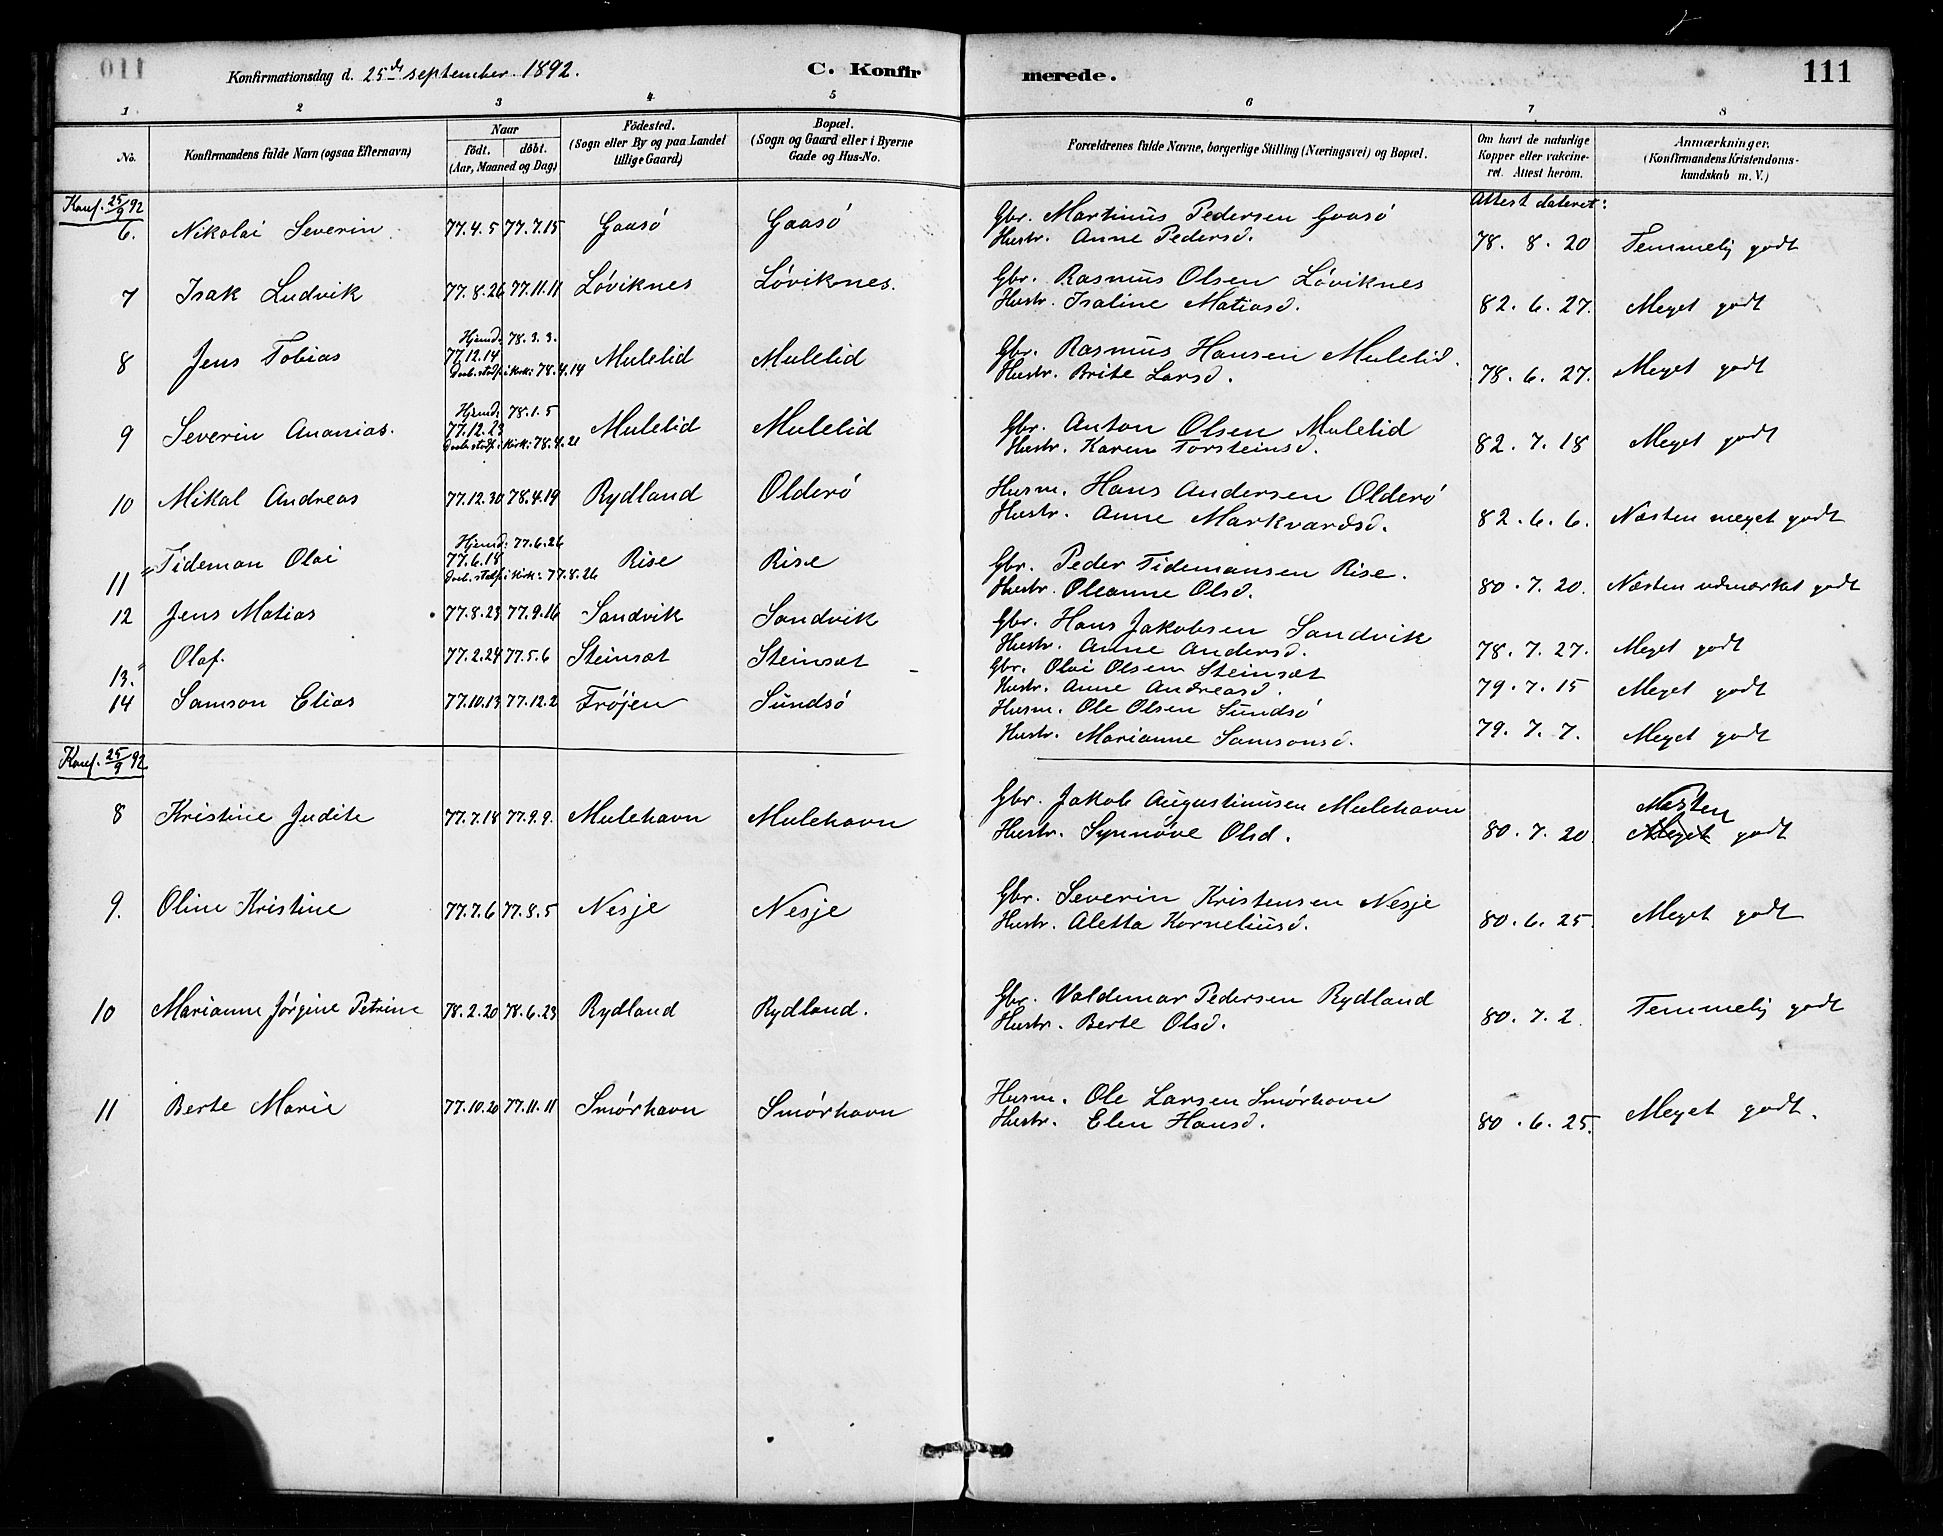 Konfirmationsdag d. 25de september 1892. C. Konfirmerede. 111
1 2 3 4 5 6 7 8
No. Konfirmandens fulde Navn (ogsaa Efternavn) Naar Födt. döbt. (Aar, Maaned og Dag) Födested. (Sogn eller By og paa Landet tillige Gaard) Bopæl. (Sogn og Gaard eller i Byerne Gade og Hus-No. Forældrenes fulde Navne, borgerlige Stilling (Næringsvei) og Bopæl. Om havt de naturlige Kopper eller vakcineret. Attest herom. Anmærkninger. (Konfirmandens Kristendomskundskab m. V.)
Konf. 25/9 92 Attest dateret:
6. Nikolai Severin 77.4.5 77.7.15 Gaasö Gaasö Gbr. Martinus Pedersen Gaasö
Hustr. Anne Pedersd. 78. 8. 20 Temmelig godt
7 Isak Ludvik 77.8.26 77.11.11 Løviknes Løviknes. Gbr. Rasmus Olsen Løviknes
Hustr. Isaline Matiasd. 82. 6. 27. Meget godt
8 Jens Tobias Hjemd: 78.3.3. 77.12.14 Daab. stadf. i Kirk: 78.4.14 Mulelid Mulelid Gbr. Rasmus Hansen Mulelid.
Hustr. Brite Larsd. 78. 6. 27. Meget godt
9 Severin Ananias. Hjemd: 78.1.5 77.12.23 Daab. stadf. i Kirk: 78.4.21 Mulelid Mulelid Gbr. Anton Olsen Mulelid
Hustr. Karen Torsteinsd. 82. 7. 18 Meget godt
10 Mikal Andreas 77.12.30 78.4.19 Rydland Olderö Husm. Hans Andersen Olderö
Hustr. Anne Markvardsd. 82. 6. 6. Næsten meget godt
11 Tideman Olai Hjemd: 77.6.26 77.6.18 Daab. stadf. i Kirk: 77.8.26 Rise Rise Gbr. Peder Tidemansen Rise.
Hustr. Oleanne Olsd. 80. 7. 20. Næsten udmærket godt
12 Jens Matias 77.8.23 77.9.16 Sandvik Sandvik Gbr. Hans Jakobsen Sandvik
Hustr. Anne Andersd. 78. 7. 27. Meget godt
13. Olaf. 77.2.24 77.5.6 Steinsæt Steinsæt Gbr. Olai Olsen Steinsæt
Hustr. Anne Andreasd. 79. 7. 15 Meget godt
14 Samson Elias 77.10.13 77.12.2 Frøjen Sundsö Husm. Ole Olsen Sundsö
Hustr. Marianne Samsonsd. 79. 7. 7. Meget godt
Konf. 25/9 92
8 Kristine Judite 77.7.18 77.9.9. Mulehavn Mulehavn Gbr. Jakob Augustinusen Mulehavn Næsten
Hustr. Synnøve Olsd. 80. 7. 20 Meget godt
9. Oline Kristine 77.7.6 77.8.5 Nesje Nesje Gbr. Severin Kristensen Nesje
Hustr. Aletta Korneliusd. 80. 6. 25. Meget godt
10 Marianne Jørgine Petrine 78.2.20 78.6.23 Rydland Rydland. Gbr. Valdemar Pedersen Rydland
Hustr. Berte Olsd. 80. 7. 2. Temmelig godt
11 Berte Marie 77.10.20 77.11.11 Smørhavn Smørhavn Husm. Ole Larsen Smørhavn
Hustr. Elen Hansd. 80. 6. 25. Meget godt.